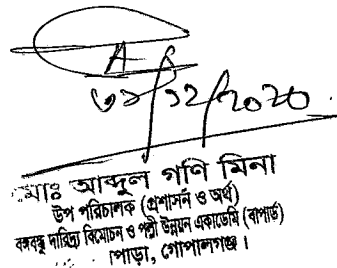 ৩১/১২/২০২০
মোঃ আব্দুল গণি মিনা
উপ পরিচালক (প্রশাসন ও অর্থ)
বঙ্গবন্ধু দারিদ্র্য বিমোচন ও পল্লী উন্নয়ন একাডেমি (বাপার্ড)
পাড়া, গোপালগঞ্জ।